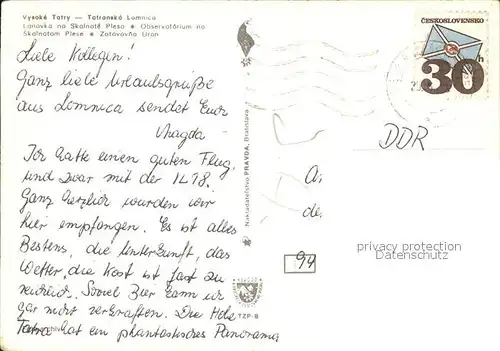 Vysoké Tatry — Tatranská Lomnica
Lanovka na Skalnaté Pleso • Observatórium na
Skalnatom Plese • Zotavovňa Urán
Liebe Kollegen!
Ganz liebe Urlaubsgrüße
aus Lomnica sendet Euch
Magda
Ich hatte einen guten Flug,
und zwar mit der IL 18.
Ganz herzlich wurden wir
hier empfangen. Es ist alles
Bestens, die Unterkunft, das
Wetter, die Kost ist fast zu
reichlich. Soviel Bier kann ich
gar nicht verkraften. Die Hohe
Tatra hat ein phantastisches Panorama
Nakladateľstvo PRAVDA, Bratislava
TZP-8
ČESKOSLOVENSKO
30h
DDR
An
de
94
privacy protection
Datenschutz